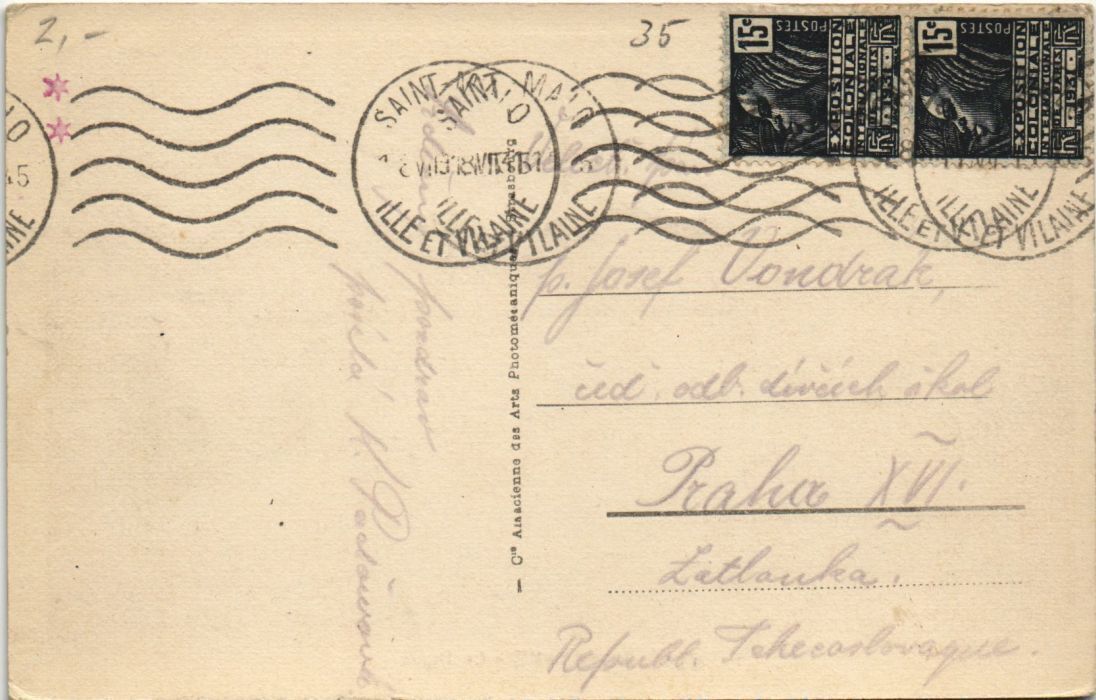 2,-
35
15c
POSTES
EXPOSITION
COLONIALE
INTERNATIONALE
PARIS
1931
15c
POSTES
EXPOSITION
COLONIALE
INTERNATIONALE
PARIS
1931
SAINT-MALO
ILLE ET VILAINE
SAINT-MALO
ILLE ET VILAINE
45
ILLE ET VILAINE
ILLE ET VILAINE
pozdrav
posílá
— Cie Alsacienne des Arts Photomécaniques, Strasbourg
p. Josef Vondrak,
odb. dívčích škol
Praha XVI.
Zatlanka.
Republ. Tchecoslovaque.